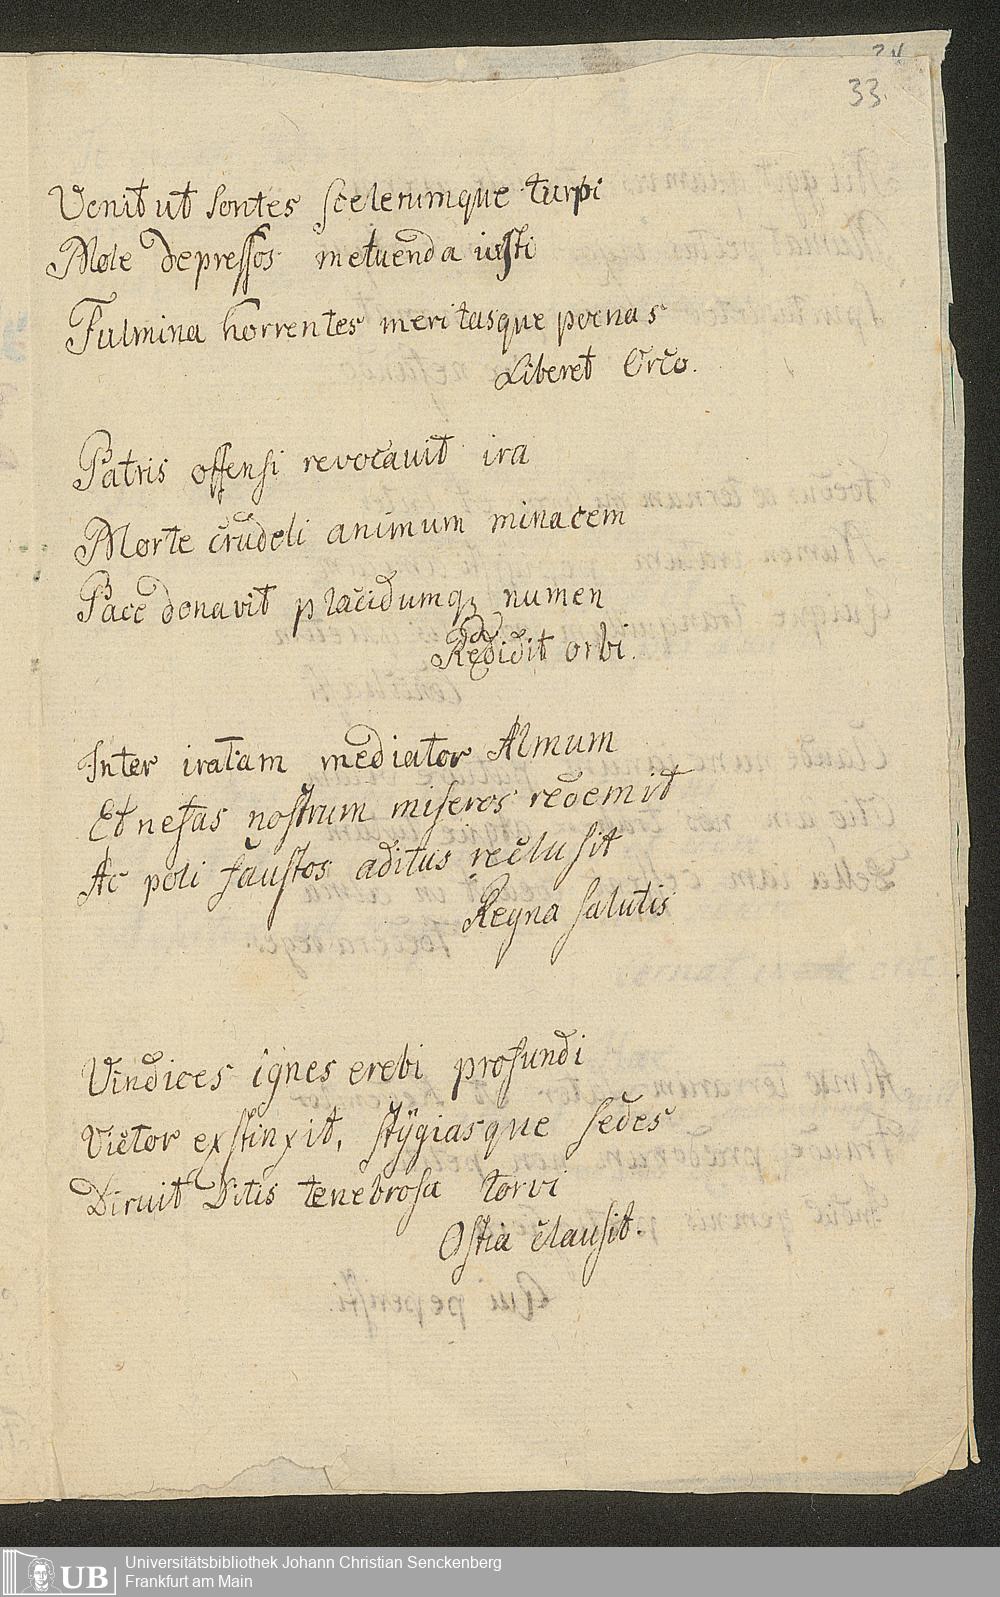 24
33.
Venit ut sontes scelerumque turpi
Mole depressos metuenda iusti
Fulmina horrentes meritasque poenas
Liberet Orco.
Patris offensi revocavit ira
Morte crudeli animum minacem
Pace donavit placidumq; numen
Reddidit orbi.
Inter iratam mediator Almum
Et nefas nostrum miseros redemit
Ac poli faustos aditus reclusit
Regna salutis
Vindices ignes erebi profundi
Victor exstinxit, stÿgiasque sedes
Diruit Ditis tenebrosa torvi
Ostia clausit.
UB
Universitätsbibliothek Johann Christian Senckenberg
Frankfurt am Main